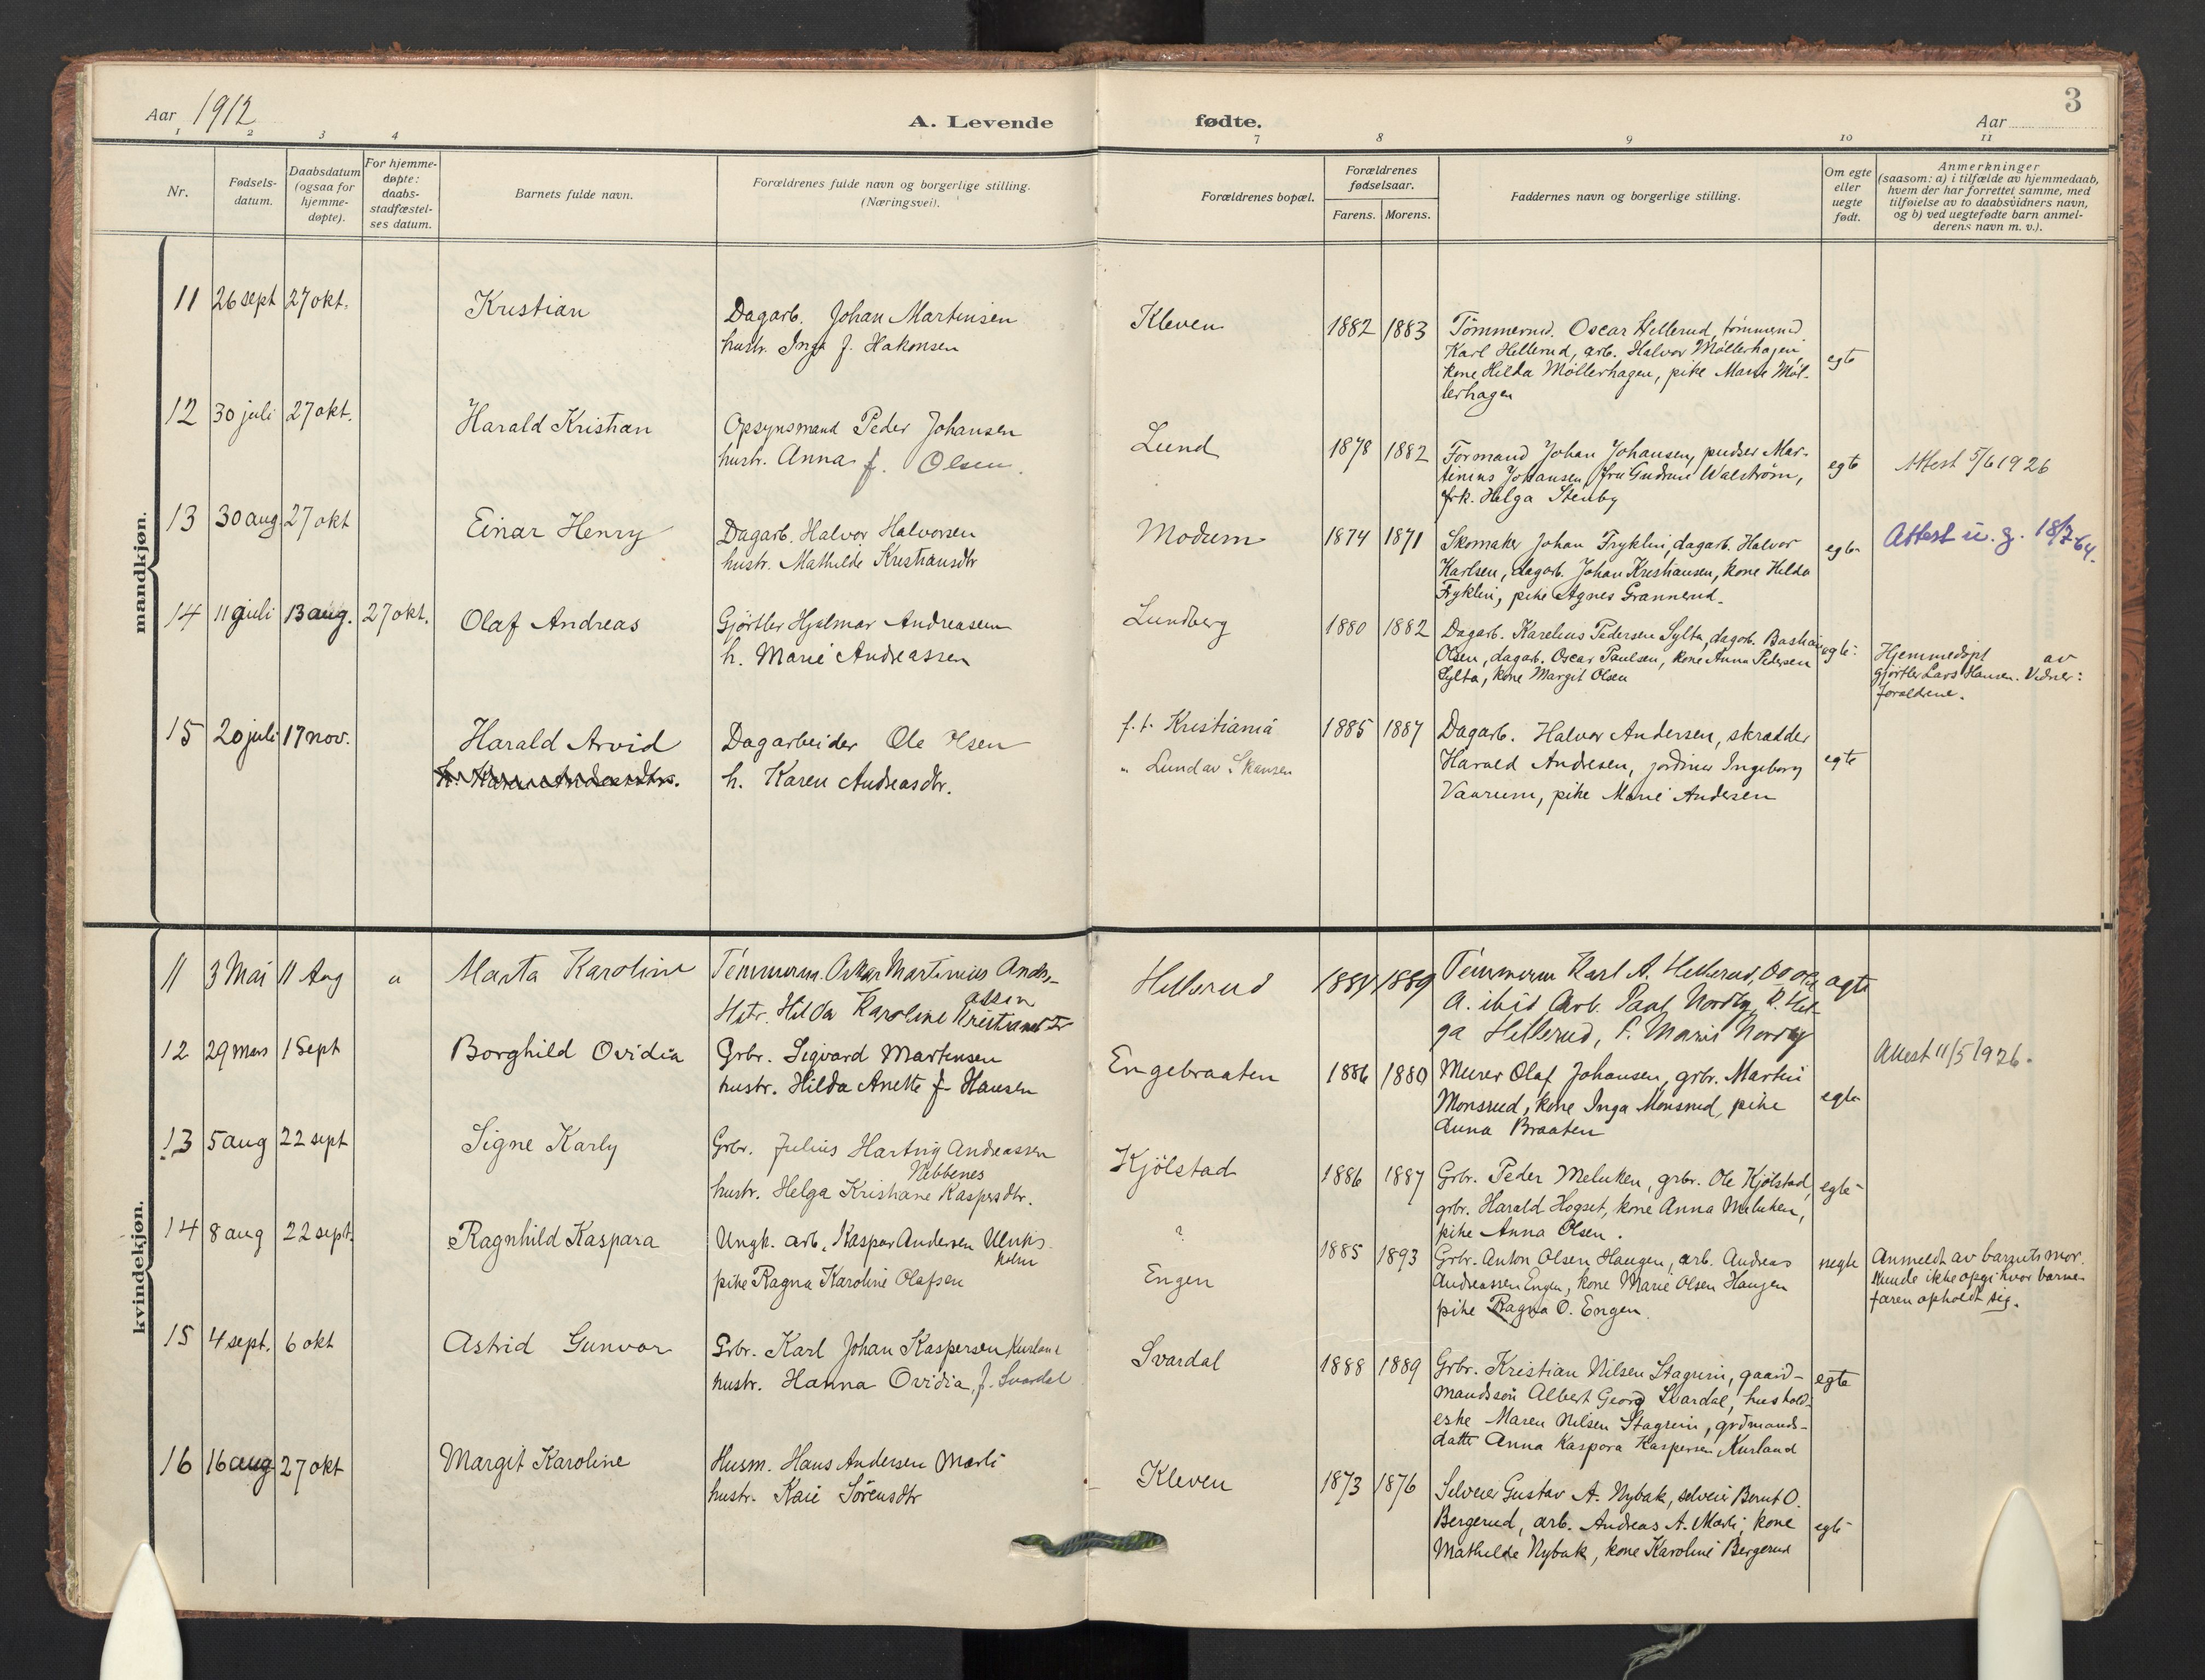 Aar 1912
A. Levende fødte.
Aar
3
1 2 3 4 7 8 9 10 11
Nr.
Fødsels-
datum.
Daabsdatum
(ogsaa for
hjemme-
døpte).
For hjemme-
døpte:
daabs-
stadfæstel-
ses datum.
Barnets fulde navn.
Forældrenes fulde navn og borgerlige stilling.
(Næringsvei).
Forældrenes bopæl.
Forældrenes
fødselsaar.
Farens. Morens.
Faddernes navn og borgerlige stilling.
Om egte
eller
uegte
født.
Anmerkninger
(saasom: a) i tilfælde av hjemmedaab,
hvem der har forrettet samme, med
tilføielse av to daabsvidners navn,
og b) ved uegtefødte barn anmel-
derens navn m. v.).
mandkjøn.
11 26 sept 27 okt. Kristian
Dagarb. Johan Martinsen
hustr. Inga f. Hakonsen
Kleven 1882 1883
Tømmermd. Oscar Hellerud, tømmermd
Karl Hellerud, arb. Halvor Møllerhagen
kone Hilda Møllerhagen, pike Marie Møl-
lerhagen
egte
12 30 juli 27 okt. Harald Kristian
Opsynsmand Peder Johansen
hustr. Anna f. Olsen.
Lund 1878 1882
Formand Johan Johansen, pudser Mar-
tinius Johansen, fru Gudrun Walstrøm,
frk. Helga Stenby
egte
Attest 5/6 1926
13 30 aug 27 okt Einar Henry
Dagarb. Halvor Halvorsen
hustr. Mathilde Kristiansdtr
Modum 1874 1871
Skomaker Johan Fryklin, dagarb. Halvor
Karlsen, dagarb. Johan Kristiansen, kone Hilda
Fryklin, pike Agnes Grannerud.
egte
Attest u. g. 18/7 64.
14 11 juli 13 aug. 27 okt. Olaf Andreas
Gjørtler Hjalmar Andreasen
h. Marie Andreassen
Lundberg 1880 1882
Dagarb. Karelius Pedersen Sylta, dagarb. Bastian
Olsen, dagarb. Oscar Paulsen, kone Anna Pedersen
Sylta, kone Margit Olsen
egte
Hjemmedøpt av
gjørtler Lars Hansen. Vidner:
forældrene.
15 20 juli 17 nov. Harald Arvid
Dagarbeider Ole Olsen
h. Karen Andreasdtr.
f. t. Kristiania
" Lund av Skansen
1885 1887
Dagarb. Halvor Andersen, skrædder
Harald Andresen, jordmor Ingeborg
Vaarum, pike Marie Andersen
egte
kvindekjøn.
11 3 Mai 11 Aug " Marta Karoline
Tømmerm. Oskar Martinius Andr-
assen
Hstr. Hilda Karoline Kristiansdtr
Hellerud 1884 1889
Tømmerm Karl A. Hellerud, Do Ole
A. ibid Arb. Paul Nordby, P. Hel-
ga Hellerud, P. Marie Nordby
ægte
12 29 mars 1 Sept Borghild Ovidia
Grbr. Sigvard Martinsen
hustr. Hilda Anette f. Hansen
Engebraaten 1886 1880
Murer Olaf Johansen, grbr. Martin
Monsrud, kone Inga Monsrud, pike
Anna Braaten
egte
Attest 11/5 1926.
13 5 aug 22 sept Signe Karly
Grbr. Julius Hartvig Andreassen
Nebbenes
hustr. Helga Kristiane Kaspersdtr.
Kjølstad 1886 1887
Grbr. Peder Meluken, grbr. Ole Kjølstad,
grbr. Harald Hogset, kone Anna Meluken,
pike Anna Olsen.
egte
14 8 aug 22 sept. Ragnhild Kaspara
Ungk. arb. Kaspar Andersen Ulviks
holm
pike Ragna Karoline Olafsen
?
Engen 1885 1893
Grbr. Anton Olsen Haugen, arb. Andreas
Andreassen Engen, kone Marie Olsen Haugen
pike Ragna O. Engen.
uegte
Anmeldt av barnets mor.
Kunde ikke opgi hvor barne-
faren opholdt sig.
15 4 sept. 6 okt Astrid Gunvor
Grbr. Karl Johan Kaspersen Kurland
hustr. Hanna Ovidia, f. Svardal
Svardal 1888 1889
Grbr. Kristian Nilsen Stagrim, gaard-
mandssøn Albert Georg Svardal, hushold-
erske Maren Nilsen Stagrim, grdmands-
datte Anna Kaspora Kaspersen Kurland
egte
16 16 aug 27 okt Margit Karoline
Husm. Hans Andersen Mærli
hustr. Kaie Sørensdtr
Kleven 1873 1876
Selveier Gustav A. Nybak, selveier Bernt O.
Bergerud, arb. Andreas A. Mærli, kone
Mathilde Nybak, kone Karoline Bergerud
egte